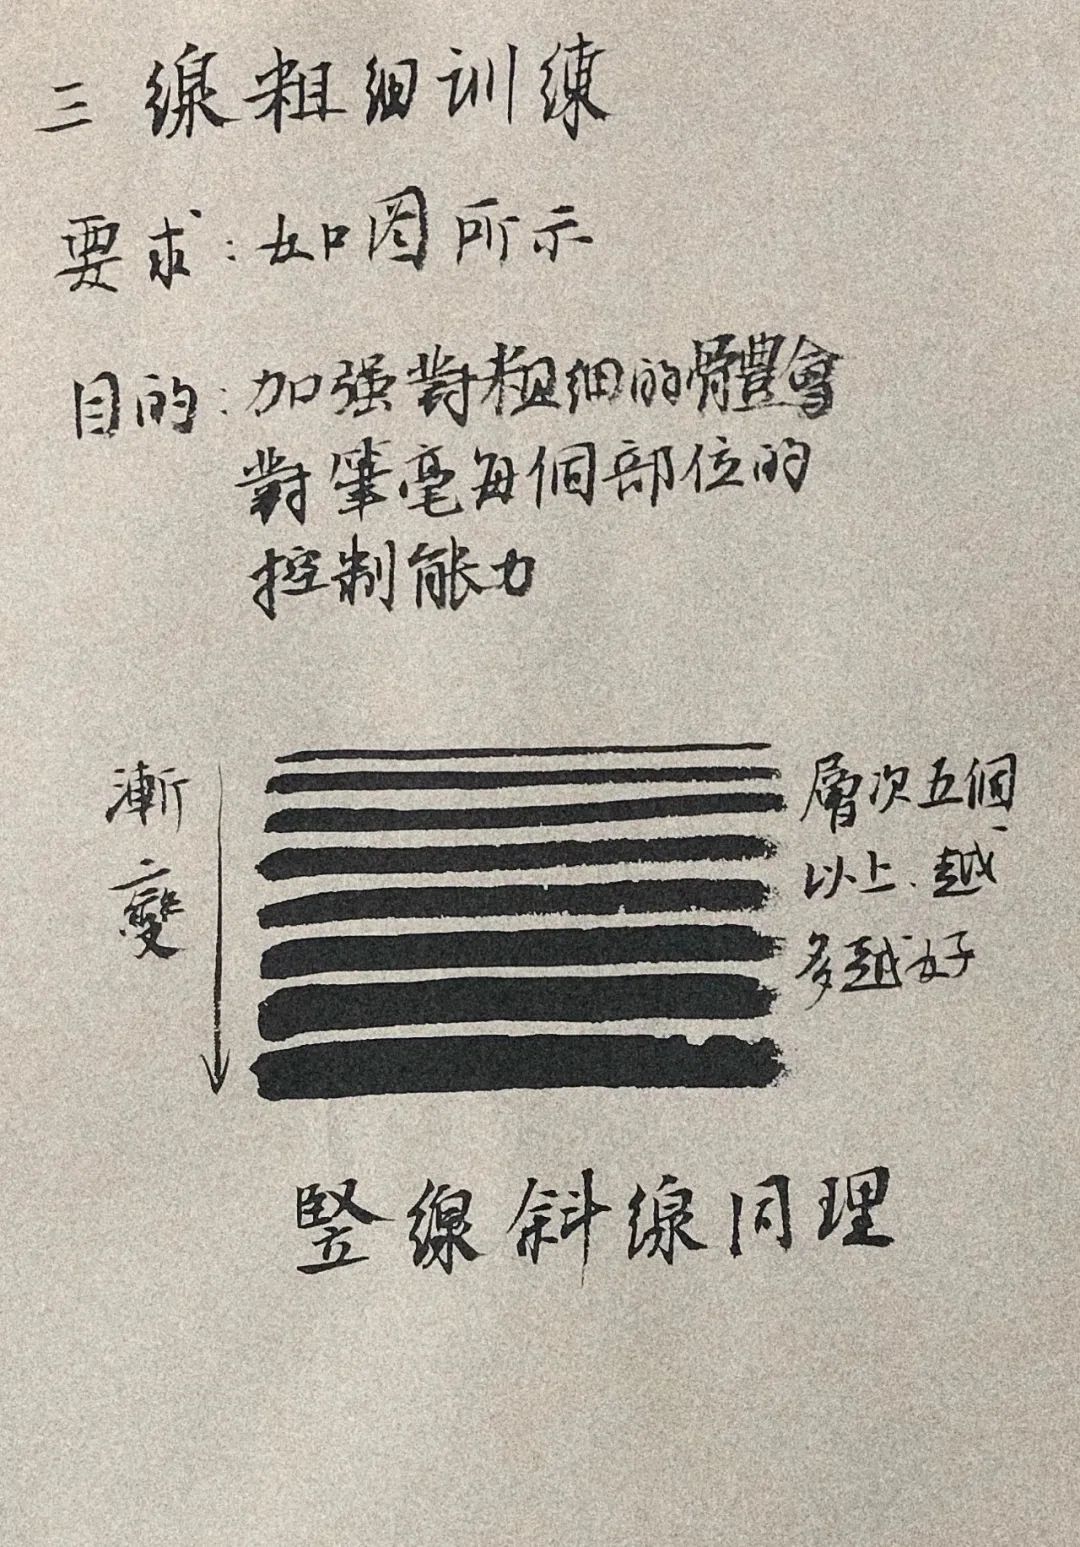 三 線粗細训練
要求：如图所示
目的：加强對粗細的體會
對筆毫每個部位的
控制能力
漸
變
層次五個
以上．越
多越好
竖線斜線同理